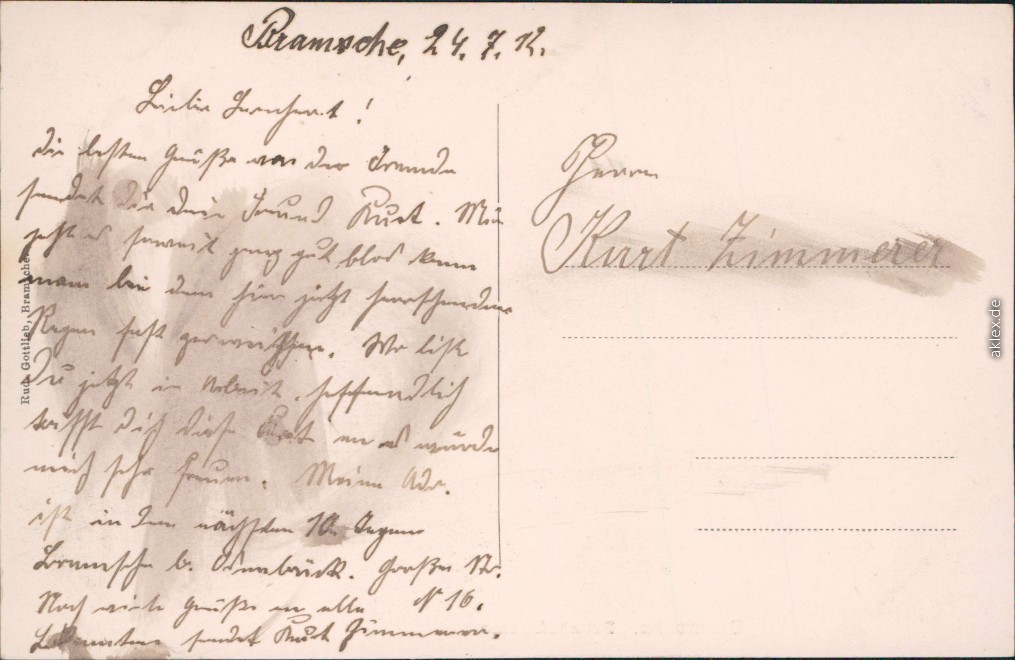 Bramsche, 24.7.12.
Lieber !
Die besten Grüße von der Fremde
sendet dir dein Freund Kurt. Mir
geht es soweit ganz gut blos kann
man bei dem hier jetzt herrschenden
Regen fast
Du jetzt in Arbeit, hoffendlich
trifft dich diese Karte an es würde
mich sehr freuen. Meine Adr.
ist in den nächsten 10 Tagen
Bramsche b. Osnabrück. Große Str.
Noch viele Grüße an alle N 16.
Bekannten sendet Kurt Zimmerer.
Herrn
Kurt Zimmerer
Rud. Gottlieb, Bramsche
aklex.de